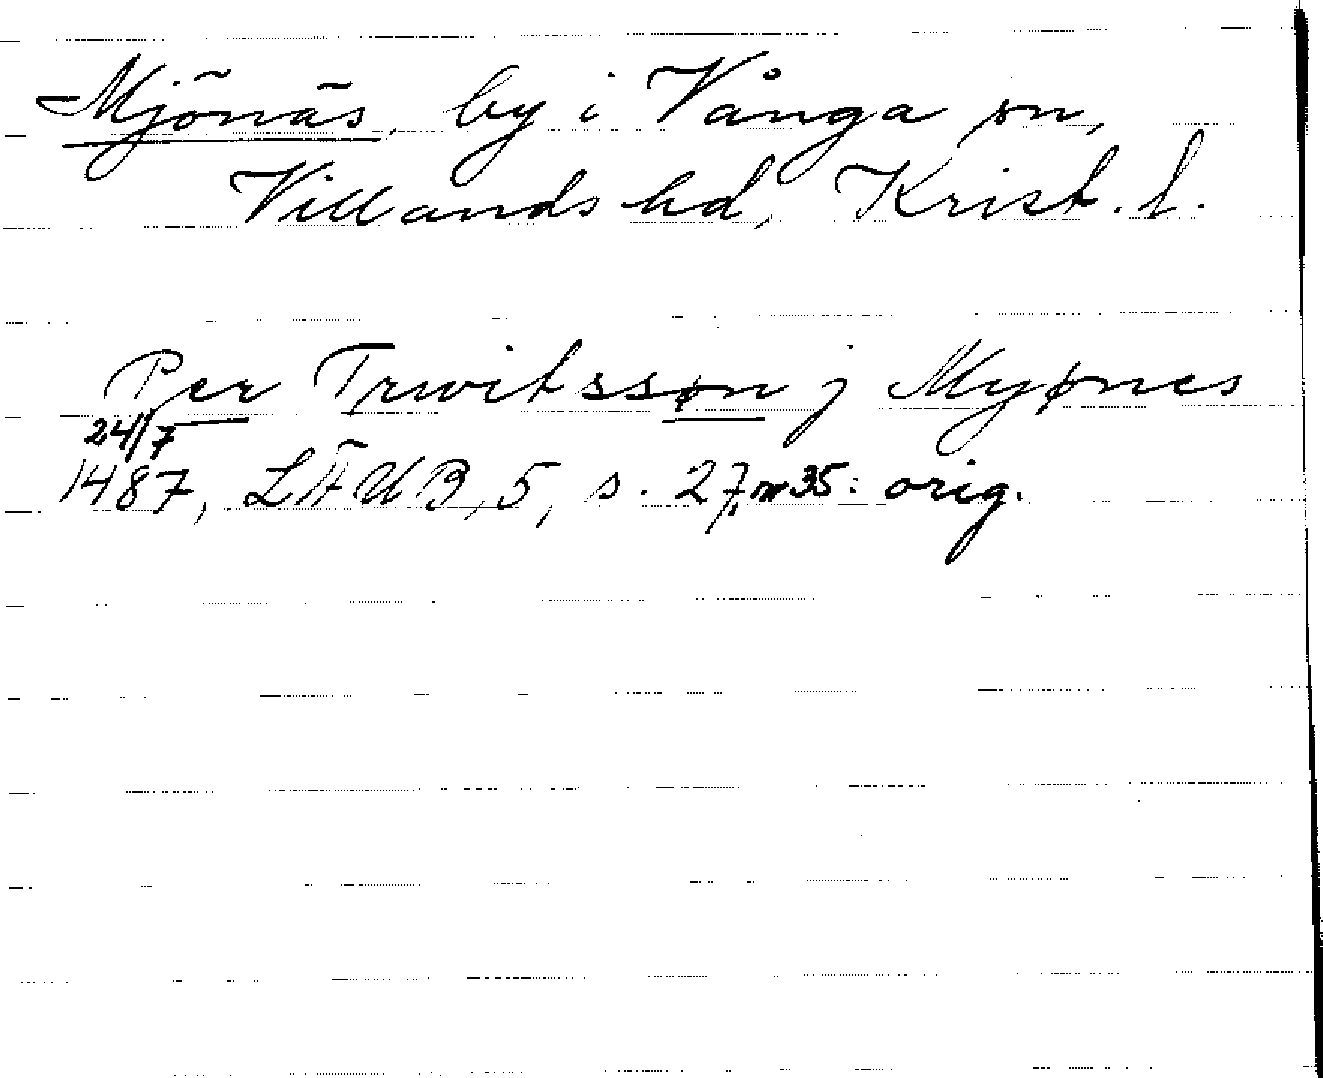 Mjönäs, by i Vånga sn,
Villands hd, Krist. l.
Per Trwitssøn j Myønes
24/7
1487, LÄUB, 5, s. 27, nr 35: orig.